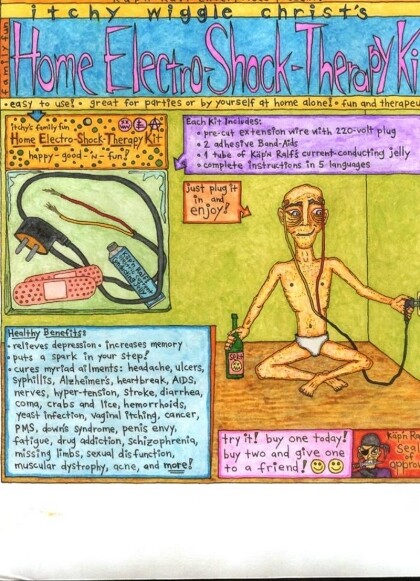 itchy wiggle christ's
family fun
Home Electro-Shock-Therapy Ki
• easy to use! • great for parties or by yourself at home alone! • fun and therape
itchy's family fun
Home Electro-Shock-Therapy Kit
happy-good-'n-fun!
Each Kit Includes:
• pre-cut extension wire with 220-volt plug
• 2 adhesive Band-Aids
• 1 tube of Käp'n Ralf's current-conducting jelly
• complete instructions in 5 languages
just plug it
in and
enjoy!
Healthy Benefits:
• relieves depression • increases memory
• puts a spark in your step!
• cures myriad ailments: headache, ulcers,
syphillis, Alzheimer's, heartbreak, AIDS,
nerves, hyper-tension, stroke, diarrhea,
coma, crabs and lice, hemorrhoids,
yeast infection, vaginal itching, cancer,
PMS, down's syndrome, penis envy,
fatigue, drug addiction, schizophrenia,
missing limbs, sexual disfunction,
muscular dystrophy, acne, and more!
try it! buy one today!
buy two and give one
to a friend!
Käp'n Ra
Seal
of
approv